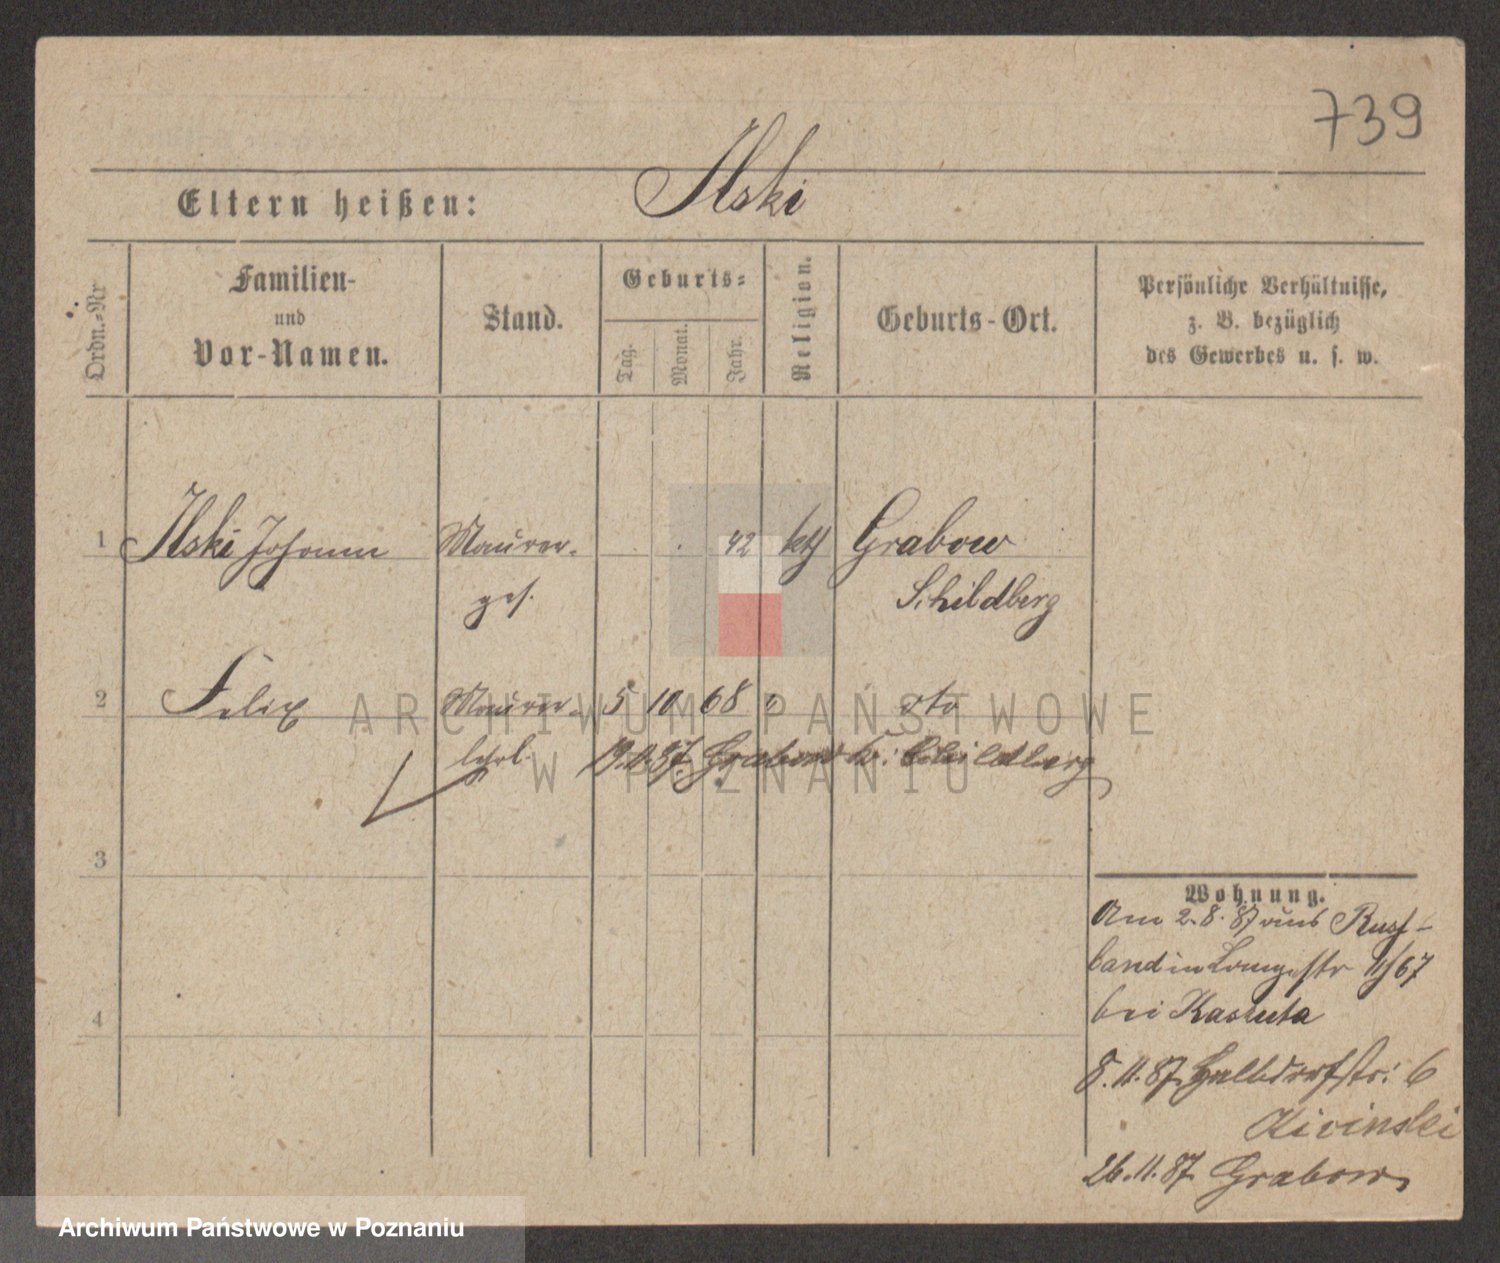 739
Eltern heißen: Ilski
Ordn.-Nr
Familien-
und
Vor-Namen.
Stand.
Geburts-
Tag. Monat. Jahr.
Religion.
Geburts-Ort.
Persönliche Verhältnisse,
z. B. bezüglich
des Gewerbes u. s. w.
1 Ilski Johann Maurer- 42 kth Grabow
ges. Schildberg
2 Felix Maurer- 5 10 68 " dto
lehrl. 19.11.87. Grabow Kr: Schildberg
3
4
Wohnung.
Am 2.8.87 aus Russ-
land in Langestr 11/67
bei
8.11.87. Halbdorfstr: 6
26.11.87 Grabow
ARCHIWUM PAŃSTWOWE
W POZNANIU
Archiwum Państwowe w Poznaniu